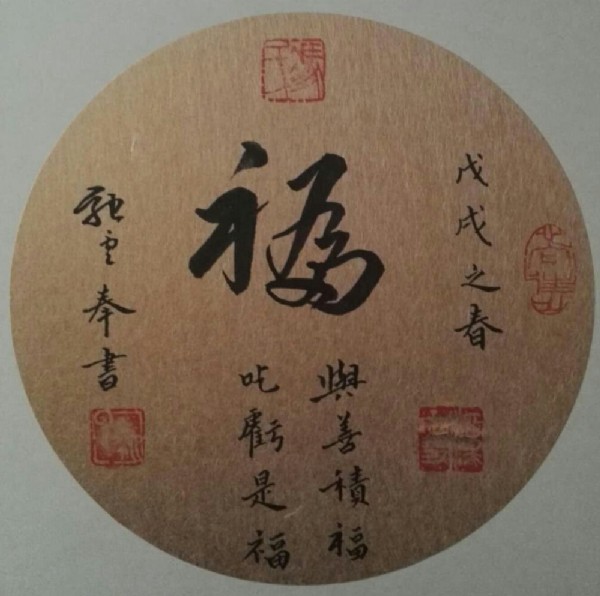 戊戌之春
福
與善積福
吃虧是福
奉書